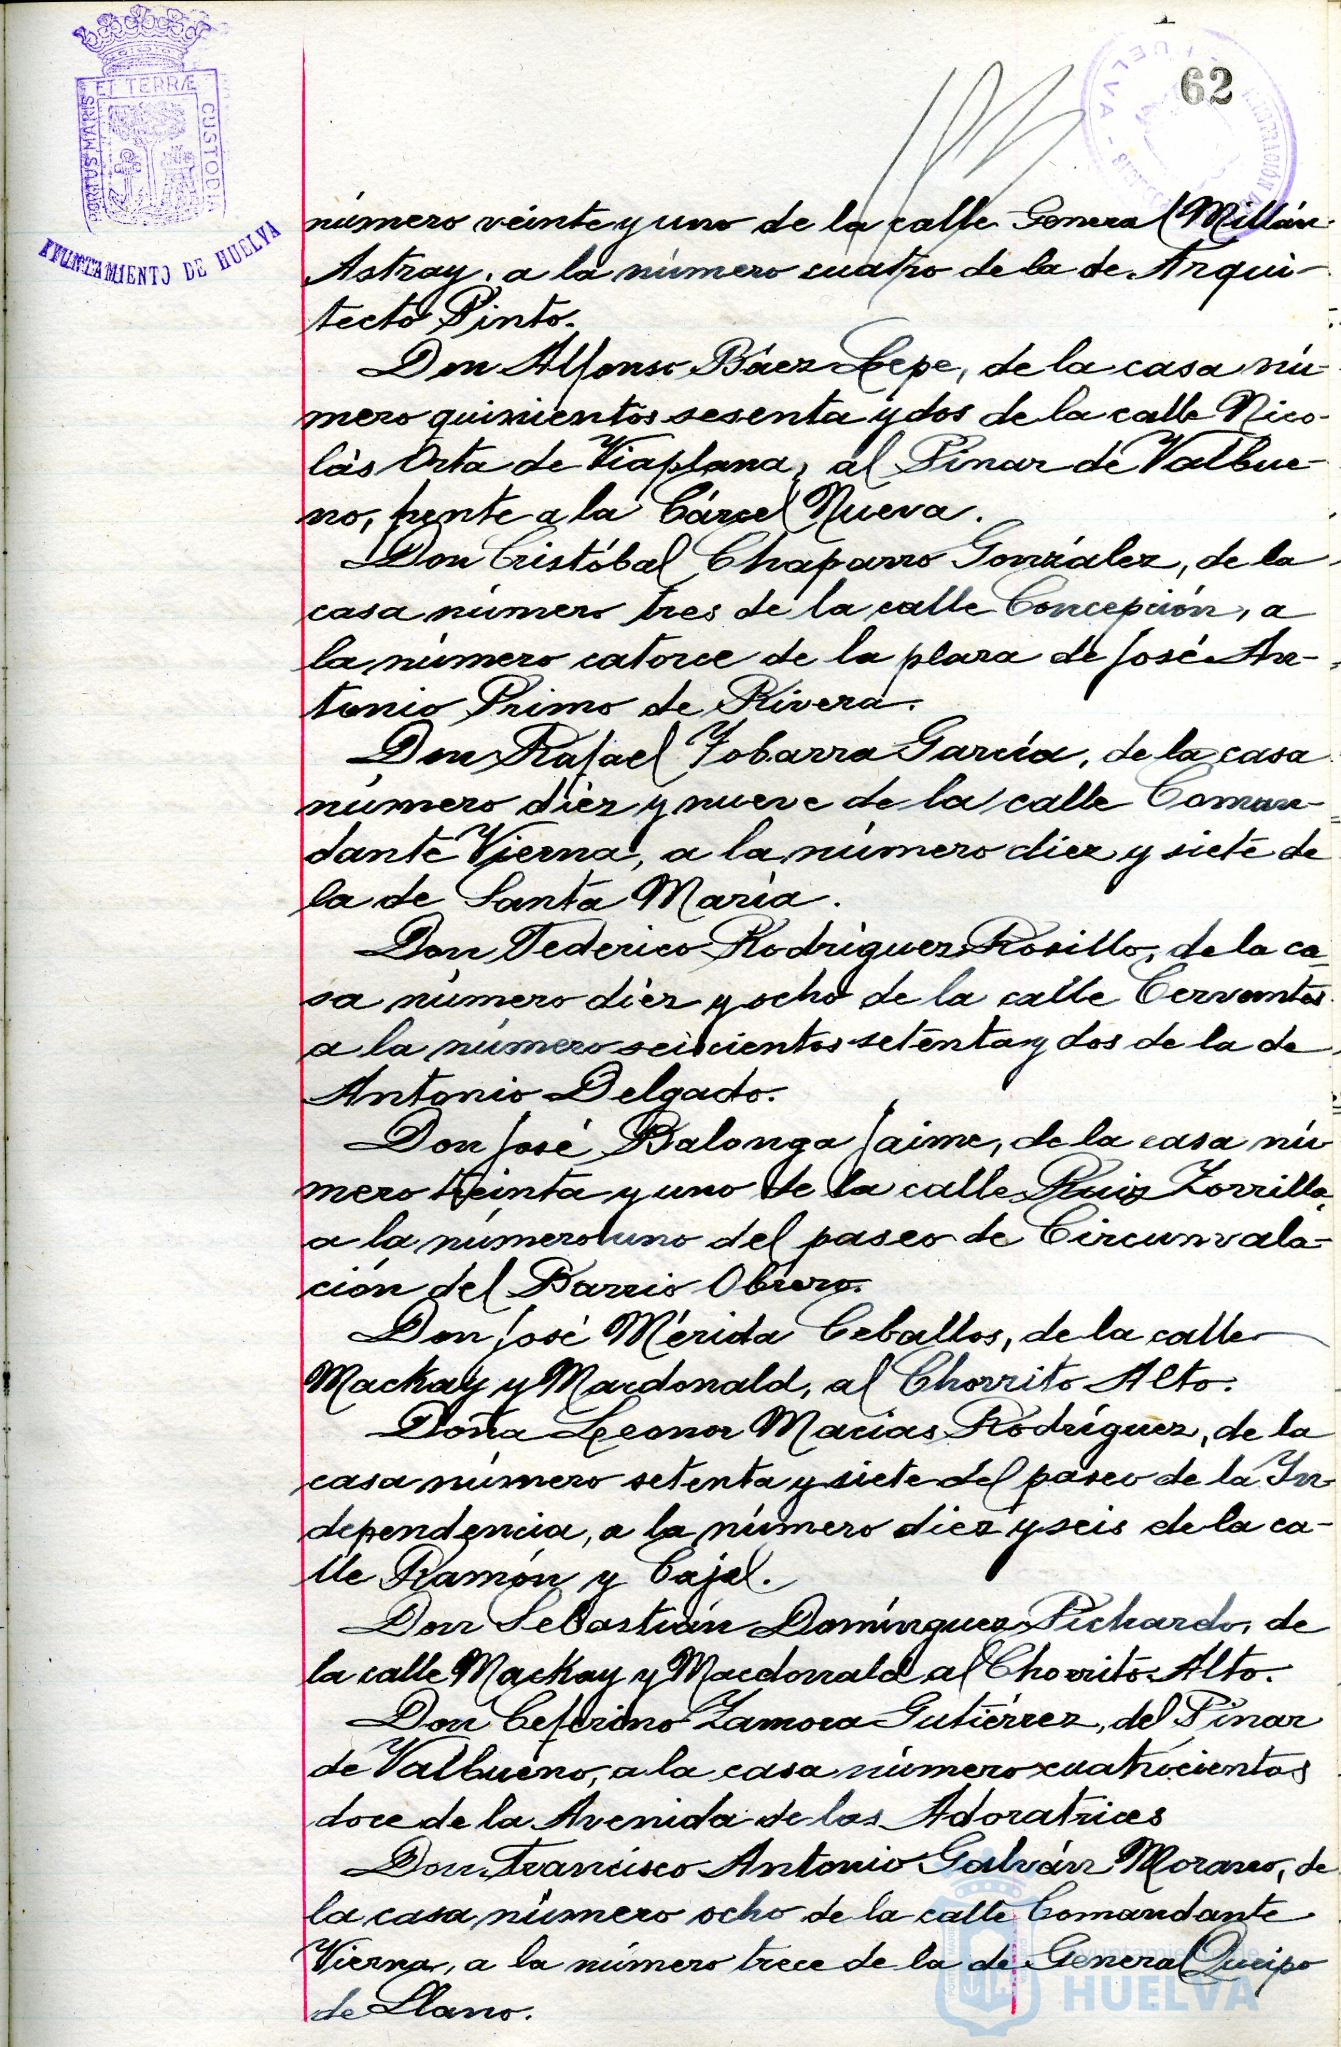 62
ET TERRÆ
PORTUS MARIS
CUSTODIA
AYUNTAMIENTO DE HUELVA
HUELVA
número veinte y uno de la calle General Millán
Astray, a la número cuatro de la de Arqui-
tecto Pinto.
Don Alfonso Báez Lepe, de la casa nú-
mero quinientos sesenta y dos de la calle Nico-
lás Orta de Viaplana, al Pinar de Valbue-
no, frente a la Cárcel Nueva.
Don Cristóbal Chaparro González, de la
casa número tres de la calle Concepción, a
la número catorce de la plaza de José An-
tonio Primo de Rivera.
Don Rafael Tobarra García, de la casa
número diez y nueve de la calle Coman-
dante Vierna, a la número diez y siete de
la de Santa María.
Don Federico Rodríguez Rosillo, de la ca-
sa número diez y ocho de la calle Cervantes
a la número seiscientos setenta y dos de la de
Antonio Delgado.
Don José Balonga Jaime, de la casa nú
mero treinta y uno de la calle Ruiz Zorrilla,
a la número uno del paseo de Circunvala-
ción del Barrio Obrero.
Don José Mérida Ceballos, de la calle
Mackay y Macdonald, al Chorrito Alto.
Doña Leonor Macias Rodríguez, de la
casa número setenta y siete del paseo de la In
dependencia, a la número diez y seis de la ca-
lle Ramón y Cajal.
Don Sebastián Domínguez Pichardo, de
la calle Mackay y Macdonald al Chorrito Alto.
Don Ceferino Zamora Gutiérrez, del Pinar
de Valbueno, a la casa número cuatrocientos
doce de la Avenida de las Adoratrices
Don Francisco Antonio Galván Morano, de
la casa número ocho de la calle Comandante
Vierna, a la número trece de la de General Queipo
de Llano.
Ayuntamiento de
HUELVA